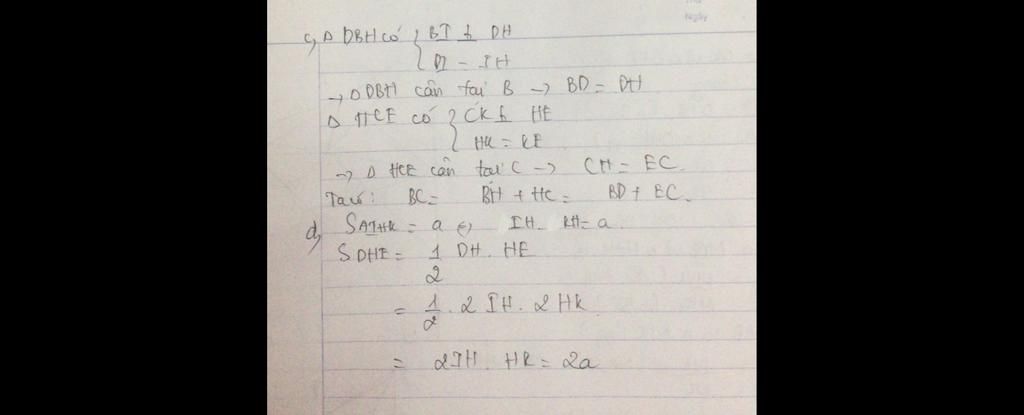 Ngày
c, Δ DBH có { BI ⊥ DH
DI = IH
→ Δ DBH cân tại B → BD = DH
Δ HCE có { CK ⊥ HE
HK = KE
→ Δ HCE cân tại C → CH = EC.
Ta có: BC = BH + HC = BD + EC.
d, S AIHK = a ⇔ IH. KH = a.
S DHE = 1/2 DH. HE
= 1/2 . 2 IH. 2 HK
= 2IH. HK = 2a